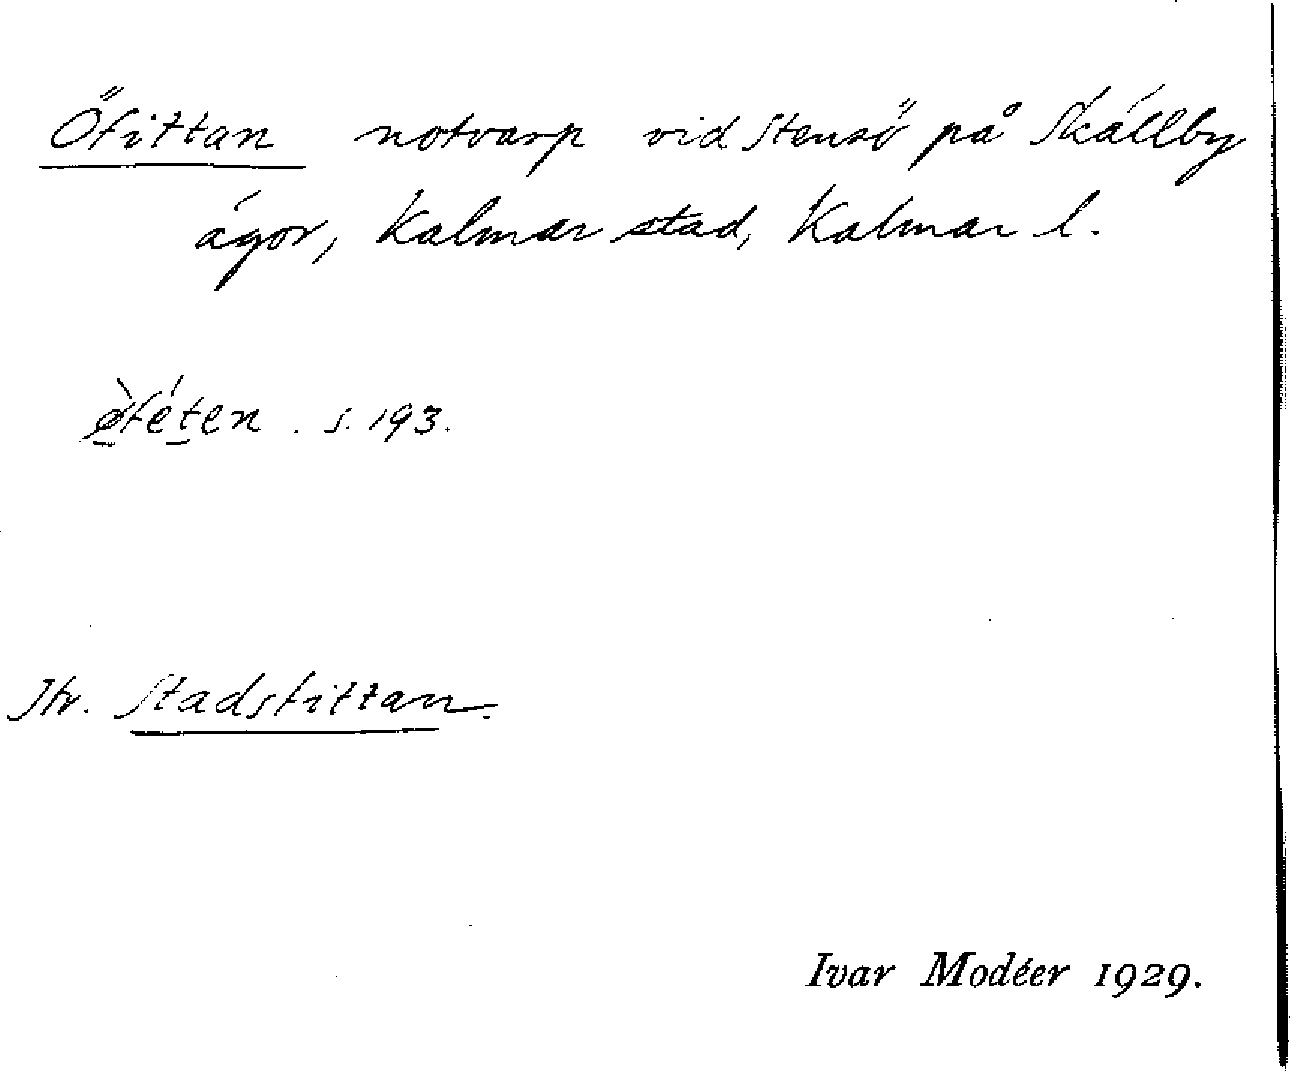 Öfittan notvarp vid Stensö på Skällby
ägor, Kalmar stad, Kalmar l.
s. 193.
Jfr. Stadsfittan.
Ivar Modéer 1929.